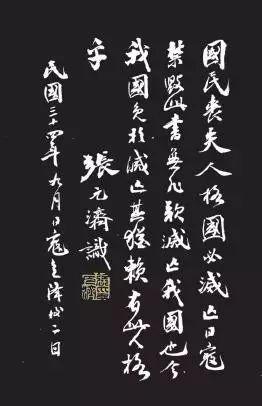 國民喪失人格國必滅亡日寇
禁燬此書無非欲滅亡我國也今
我國免於滅亡其猶賴有此人格
乎 張元濟識
民國三十四年九月日寇降後二日